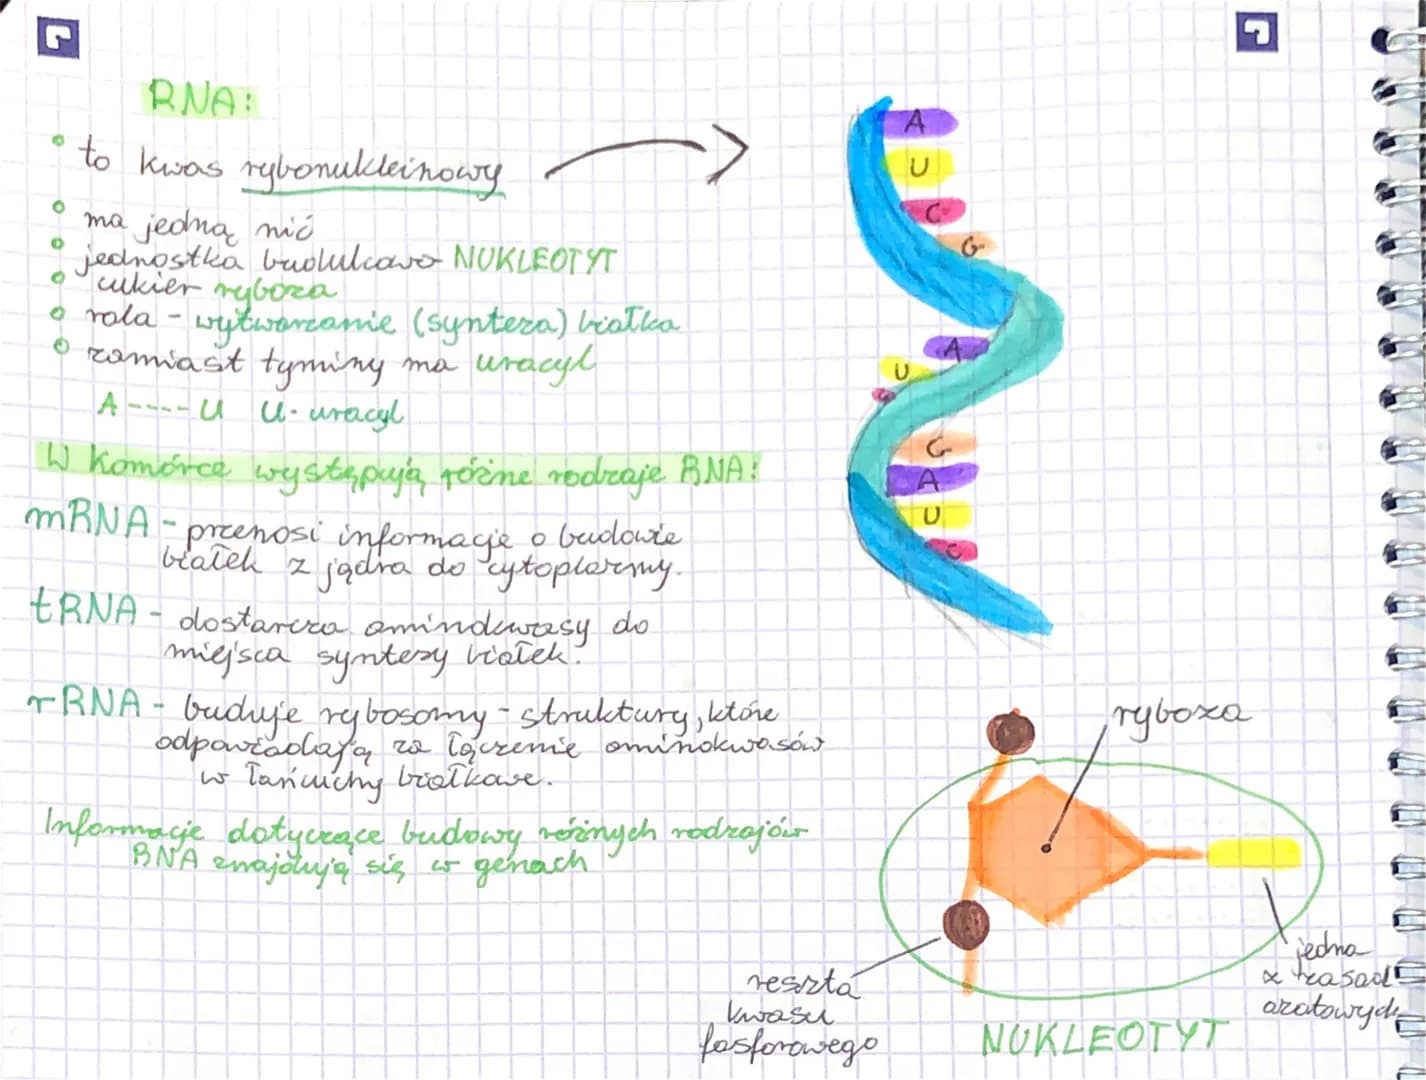 RNA:
to kwas rybonukleinowy
ma jedną nić
jednostka budulcowa NUKLEOTYT
cukier ryboza
rola - wytwarzanie (synteza) białka
zamiast tyminy ma uracyl
A ---- U U- uracyl
W komórce występują różne rodzaje RNA:
mRNA - przenosi informacje o budowie
białek z jądra do cytoplazmy.
tRNA - dostarcza aminokwasy do
miejsca syntezy białek.
rRNA - buduje rybosomy - struktury, które
odpowiadają za łączenie aminokwasów
w łańcuchy białkowe.
Informacje dotyczące budowy różnych rodzajów
RNA znajdują się w genach
A
U
C
G
A
U
C
G
A
U
C
ryboza
reszta
kwasu
fosforowego
jedna
z zasad
azotowych
NUKLEOTYT